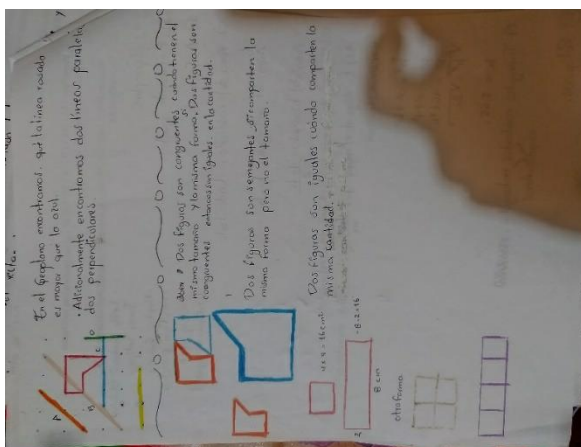 En el Geoplano encontramos que la linea rosada
es mayor que la azul.
• Adicionalmente encontramos dos lineas paralela
dos perpendiculares
Dos figuras son congruentes cuando tienen el
mismo tamaño y la misma forma. Dos figuras son
congruentes entonces son iguales en la cantidad.
Dos figuras son semejantes si comparten la
misma forma pero no el tamaño.
Dos figuras son iguales cuando comparten la
misma cantidad.
4 x 4 = 16 cm²
8 · 2 = 16
2
8 cm
otra forma